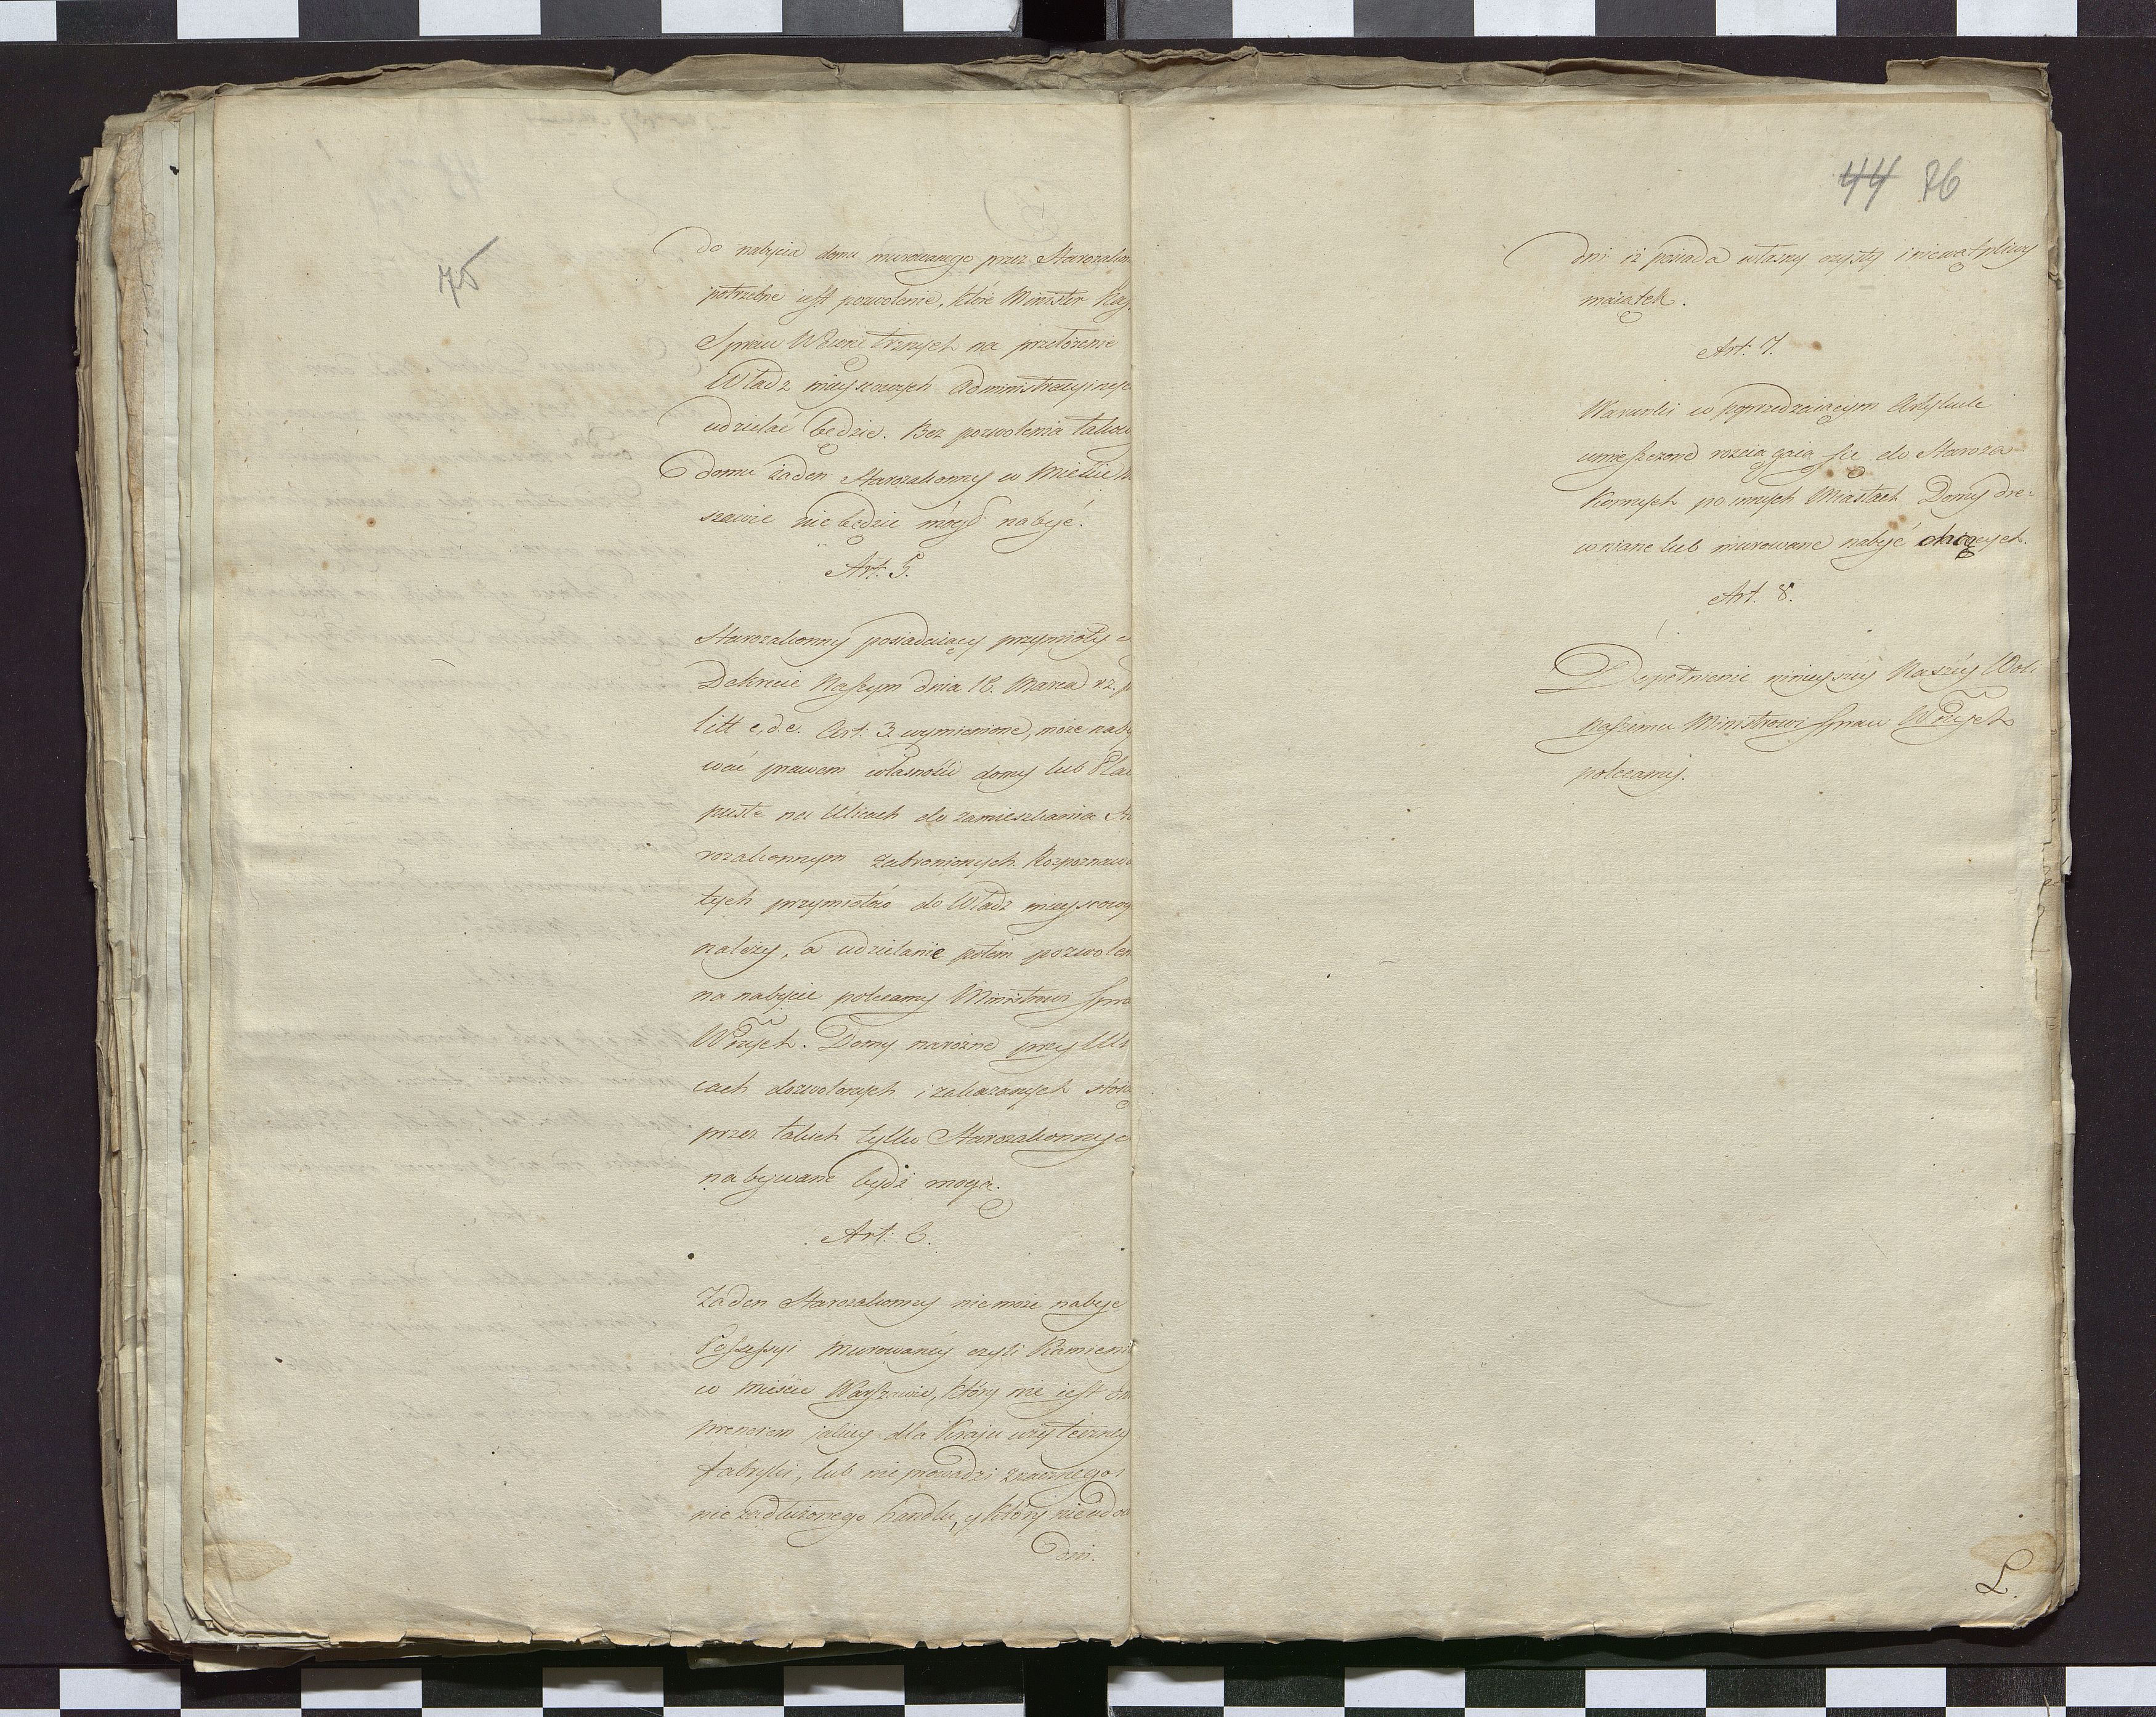 75
do nabycia domu murowanego przez Starozakon
potrzebne iest pozwolenie, które Minister
Spraw Wewnetrznych na przełożenie
Władz mieyscowych Administracyinych
udzielać będzie. Bez pozwolenia takow
domu żaden Starozakonny w Mieście
szawie nie będzie mógł nabyć.
Art. 5.
Starozakonny posiadaiący przymioty
Dekrecie Naszym dnia 16. Marca r. z.
litt c, d. e. Art. 3. wymienione, może naby
wać prawem własności domy lub Plac
puste na Ulicach do zamieszkania
rozakonnym zabronionych. Rozpoznaw
tych przymiotów do Władz mieyscowy
należy, a udzielanie potem pozwolen
na nabycie polecamy Ministrowi Spra
Wnych. Domy narożne przy Uli
cach dozwolonych i zakazanych
przez takich tylko Starozakonnyc
nabywane bydź mogą.
Art: 6.
Żaden Starozakonny niemoże nabyć
Possessyi murowanéy czyli Kamieni
w mieście Warszawie, który nie iest
prenerem jakiey dla Kraju użyteczney
fabryki, lub nie prowadzi znacznego i
nie zadłużonego handlu, y który nieudo
dni.
44 76
dni iż posiada własny czysty i niewątpliwy
maiątek.
Art: 7.
Warunki w poprzedzaiącym Artykule
umieszczone rozciągaią się do Staroza
konnych po innych Miastach Domy dre-
wniane lub murowane nabyć chcących.
Art. 8.
Dopełnienie ninieyszéy Naszéy Woli
Naszemu Ministrowi Spraw Wnych
polecamy.
L.